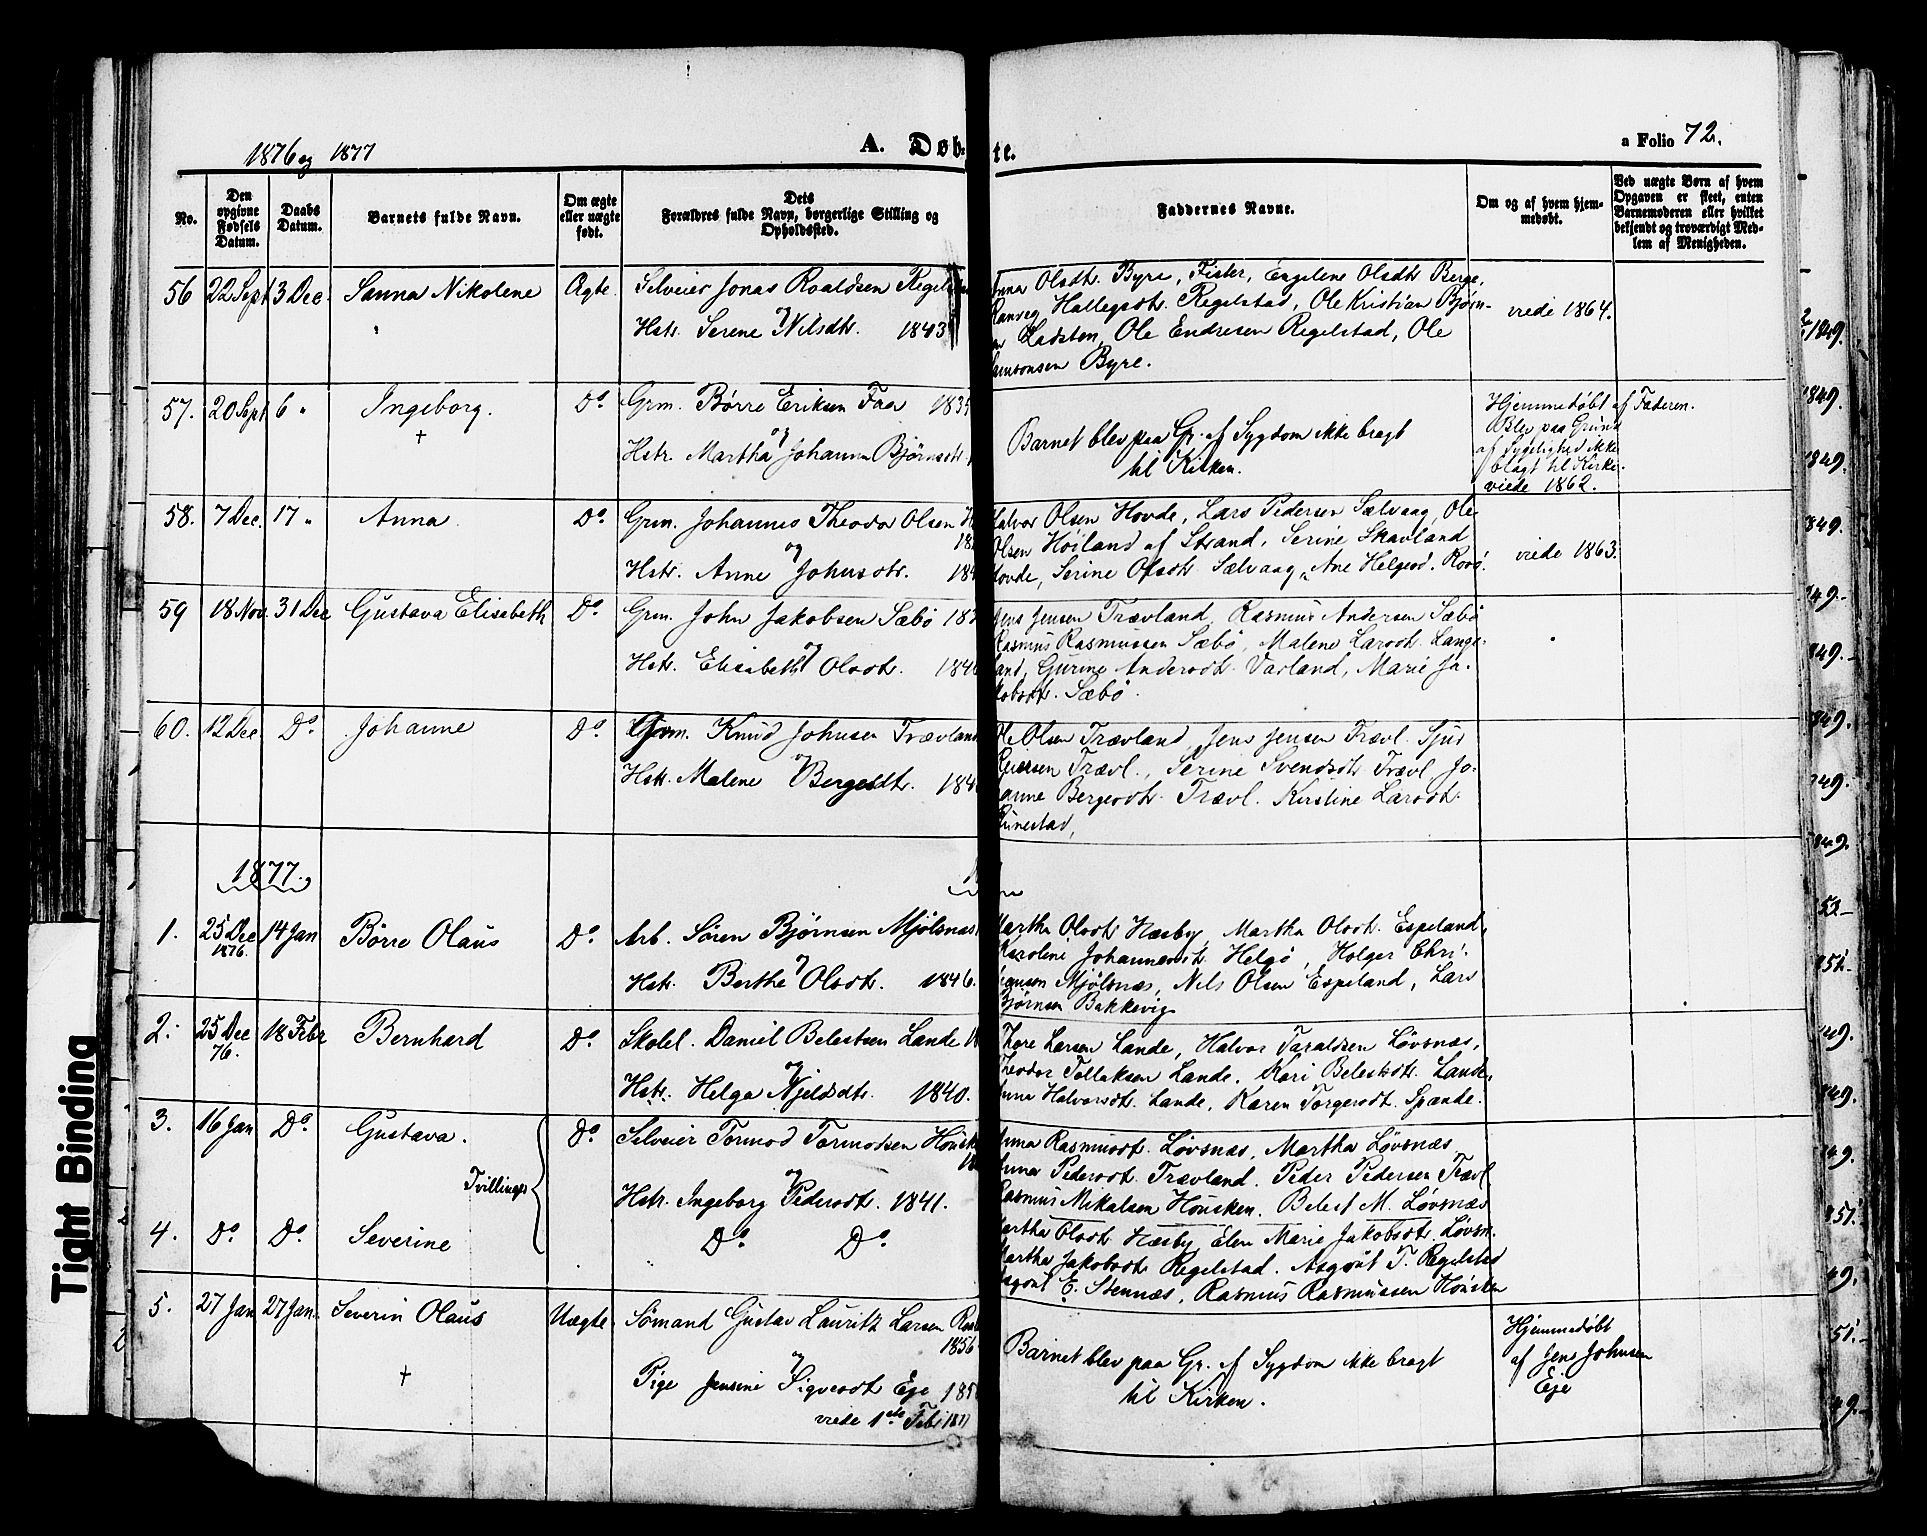 1876 og 1877
A. Døbte.
a Folio 72.
No.
Den opgivne Fødsels Datum.
Daabs Datum.
Barnets fulde Navn.
Om ægte eller uægte født.
Dets Forældres fulde Navn, borgerlige Stilling og Opholdssted.
Faddernes Navne.
Om og af hvem hjemmedøbt.
Ved uægte Børn af hvem Opgaven er skeet, enten Barnemoderen eller hvilket bekjendt og troværdigt Medlem af Menigheden.
56 22 Sept 3 Dec. Sanna Nikolene Ægte. Selveier Jonas Roaldsen
og
Hstr. Serene Nilsdtr. 1843
Olsdtr. Byre, Fister, Engelene Olsdtr Berge,
Hallegsdtr. Regelstad, Ole Kristian Bjørn-
Ladsten, Ole Endresen Regelstad, Ole
Byre.
viede 1864.
57. 20 Sept 6 " Ingeborg. † Do. Grm. Børre Eriksen Faa
og
Hstr. Martha Johanna Bjørnsdtr.
Barnet blev paa Gr. af Sygdom ikke bragt
til Kirken.
Hjemmedøbt af Faderen.
Blev paa Grund
af Sygelighed ikke
bragt til Kirke.
viede 1862.
58. 7 Dec. 17 " Anna. Do. Grm. Johannes Theodor Olsen
og
Hstr. Anne Johnsdtr.
Halvor Olsen Hovde, Lars Pedersen Sælvaag, Ole
Olsen Høiland af Strand, Serine Skavland
Hovde, Serine Olsdtr Sælvaag, Ane Helgesd.
viede 1863.
59 18 Nov. 31 Dec Gustava Elisabeth Do. Grm. John Jakobsen Sæbø
og
Hstr. Elisabeth Olsdtr.
Jens Jensen Trævland, Rasmus Andersen Sæbø
Rasmus Rasmussen Sæbø, Malene Larsdtr. Lange-
land, Gurine Andersdtr. Varland, Marie Ja-
kobsdtr. Sæbø.
60. 12 Dec. Do. Johanne Do. Grm. Knud Johnsen Trævland
og
Hstr. Malene Bergesdtr.
Ole Olsen Trævland, Jens Jensen Trævl. Sjur
Trævl., Serine Svendsdtr. Trævl, Jo-
hanne Bergesdtr. Trævl. Kirstine Larsdtr.
1877.
1. 25 Dec 1876. 14 Jan Børre Olaus Do. Arb. Søren Bjørnsen Mjølsnæs
og
Hstr. Berthe Olsdtr. 1846.
Martha Olsdtr. Hæsby, Martha Olsdtr. Espeland,
Karoline Johannesdtr. Helgø, Holger Chri-
Mjølsnæs, Nils Olsen Espeland, Lars
Bjørnsen Bakkevig
2. 25 Dec 76. 18 Febr Bernhard Do. Skolel. Daniel Belestsen Lande
og
Hstr. Helga Njeldsdtr. 1840.
Tore Larsen Lande, Halvor Taraldsen Løvsnæs,
Theodor Tollaksen Lande. Kari Belestsdtr. Lande,
Halvorsdtr. Lande, Karen Torgersdt. Spande.
3. 16 Jan Do. Gustava. Do. Selveier Tormod Tormodsen
Tvillinger
og
Hstr. Ingeborg Pedersdtr. 1841.
Anna Rasmusdt. Løvsnæs, Martha Løvsnæs
Anna Pedersdt. Trævland. Peder Pedersen Trævl
Rasmus Mikalsen Housken. Belest M. Løvsnæs
4. Do. Do. Severine Do. Do.
Martha Olsdtr. Hæsby, Elen Marie Jakobsdtr. Løvsn.
Martha Jakobsdtr Regelstad. Asgout T. Regelstad
Asgout E. Stennæs, Rasmus Rasmussen Housken
5. 27 Jan 27 Jan. Severin Olaus † Uægte. Sømand Gustav Lauritz Larsen
1856
og
Pige Jensine Sigvesdt Eje
viede 1ste Feb. 1877
Barnet blev paa Gr. af Sygdom ikke bragt
til Kirken.
Hjemmedøbt
af Jens Johnsen
Eje
Tight Binding